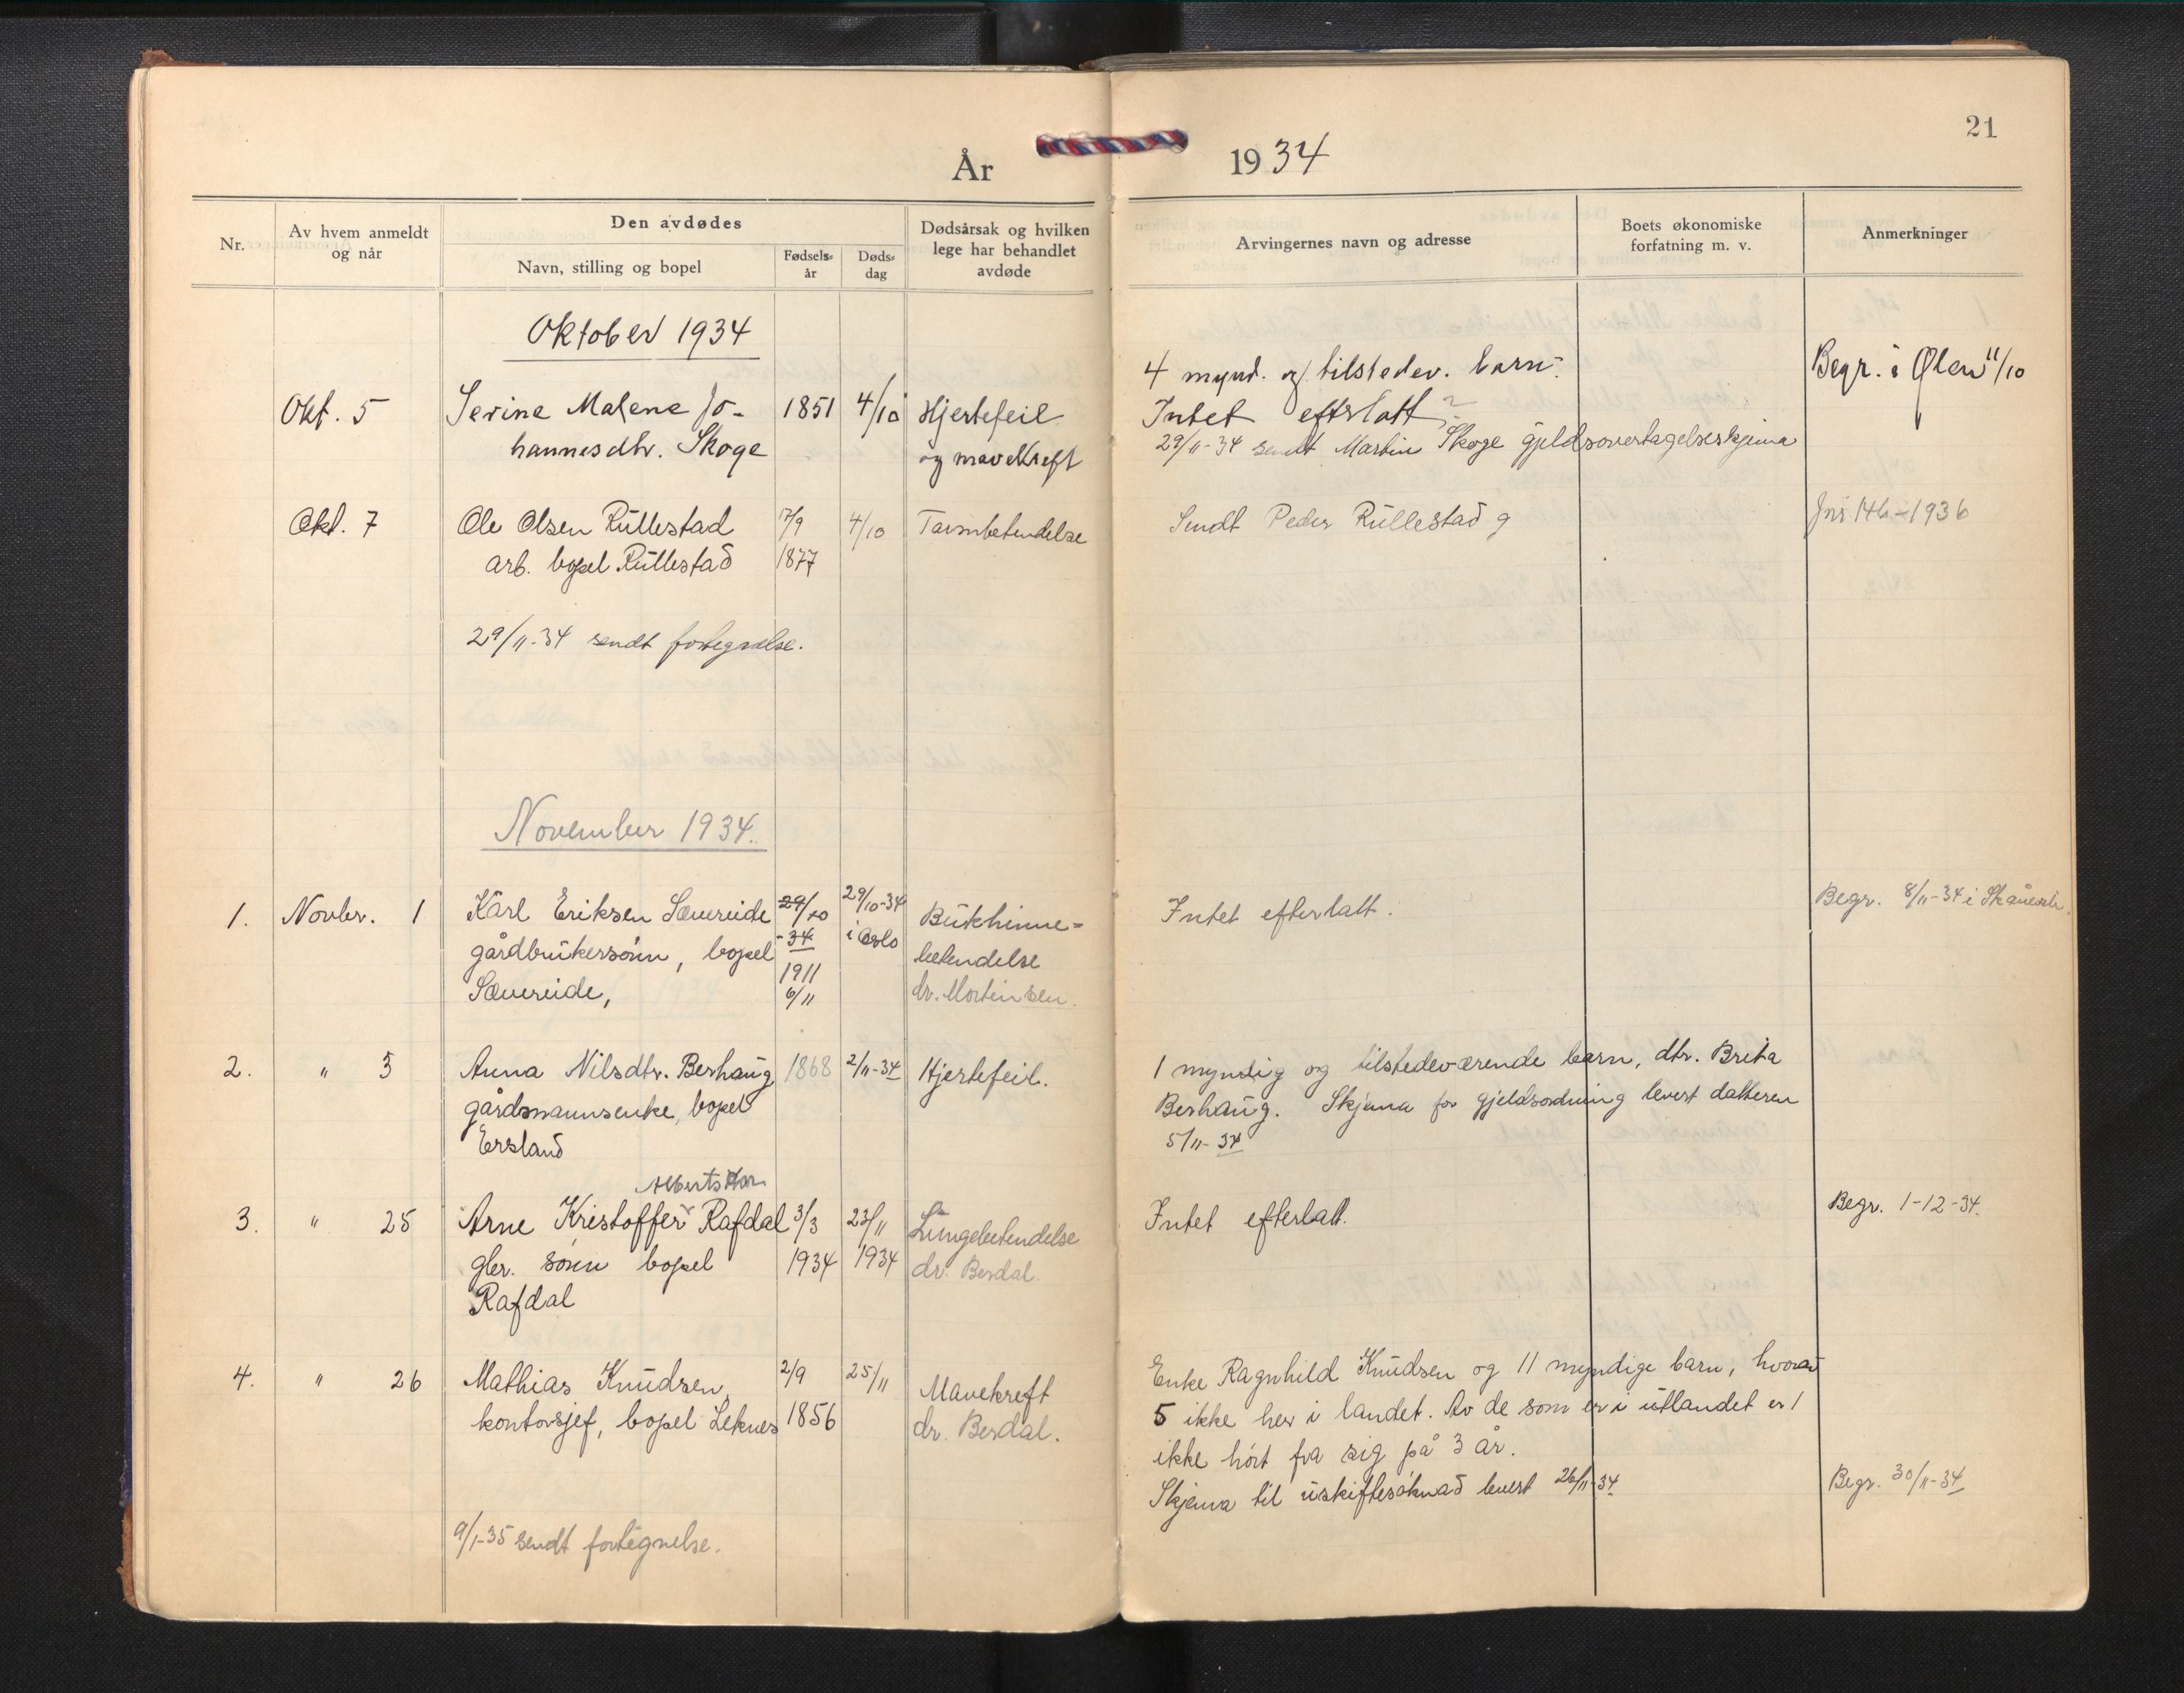 21
År 1934
Nr.
Av hvem anmeldt
og når
Den avdødes
Navn, stilling og bopel
Fødsels-
år
Døds-
dag
Dødsårsak og hvilken
lege har behandlet
avdøde
Arvingernes navn og adresse
Boets økonomiske
forfatning m. v.
Anmerkninger
Oktober 1934
4 mynd. og tilstedev. barn. Begr. i Ølen 11/10
Okt. 5 Serine Malene Jo- 1851 4/10 Hjertefeil Intet efterlatt ?
hannesdtr. Skoge og mavekreft 29/11-34 sendt Martin Skoge gjeldsovertagelseskjema
Okt. 7 Ole Olsen Rullestad 17/9 4/10 Tarmbetendelse Sendt Peder Rullestad 146-1936
arb. bopel Rullestad 1877
29/11-34 sendt fortegnelse.
November 1934.
1. Novbr. 1 Karl Eriksen Sævereide 29/10 29/10-34 Bukhinne- Intet efterlatt. Begr. 8/11-34 i Skånevik.
gårdbrukersønn, bopel -34 i Oslo betendelse
Sævereide, 1911 dr. Mortensen.
6/11
2. " 5 Anna Nilsdtr. Berhaug 1868 2/11-34 Hjertefeil. 1 myndig og tilstedeværende barn, dtr. Brita
gårdmannsenke, bopel Berhaug. Skjema for gjeldsordning levert datteren
Ersland 5/11-34
Alberts
3. " 25 Arne Kristoffer Rafdal 3/3 23/11 Lungebetendelse Intet efterlatt. Begr. 1-12-34.
gbr. sønn bopel 1934 1934 dr. Berdal.
Rafdal
4. " 26 Mathias Knudsen, 2/9 25/11 Mavekreft Enke Ragnhild Knudsen og 11 myndige barn, hvorav
kontorsjef, bopel Leknes 1856 dr. Berdal. 5 ikke her i landet. Av de som er i utlandet er 1
ikke hørt fra sig på 3 år.
Skjema til uskiftesøknad levert 26/11-34 Begr. 30/11-34
9/1-35 sendt fortegnelse.